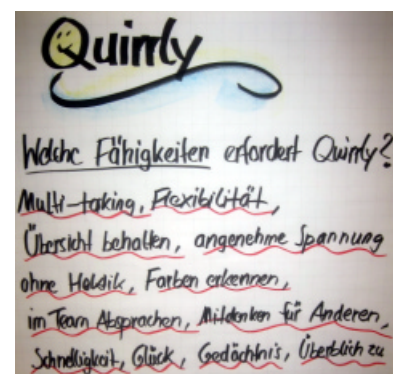 Quirrly
Welche Fähigkeiten erfordert Quirrly?
Multi-taking, Flexibilität,
Übersicht behalten, angenehme Spannung
ohne Hektik, Farben erkennen,
im Team Absprachen, Mitdenken für Anderen,
Schnelligkeit, Glück, Gedächtnis, Überblick zu